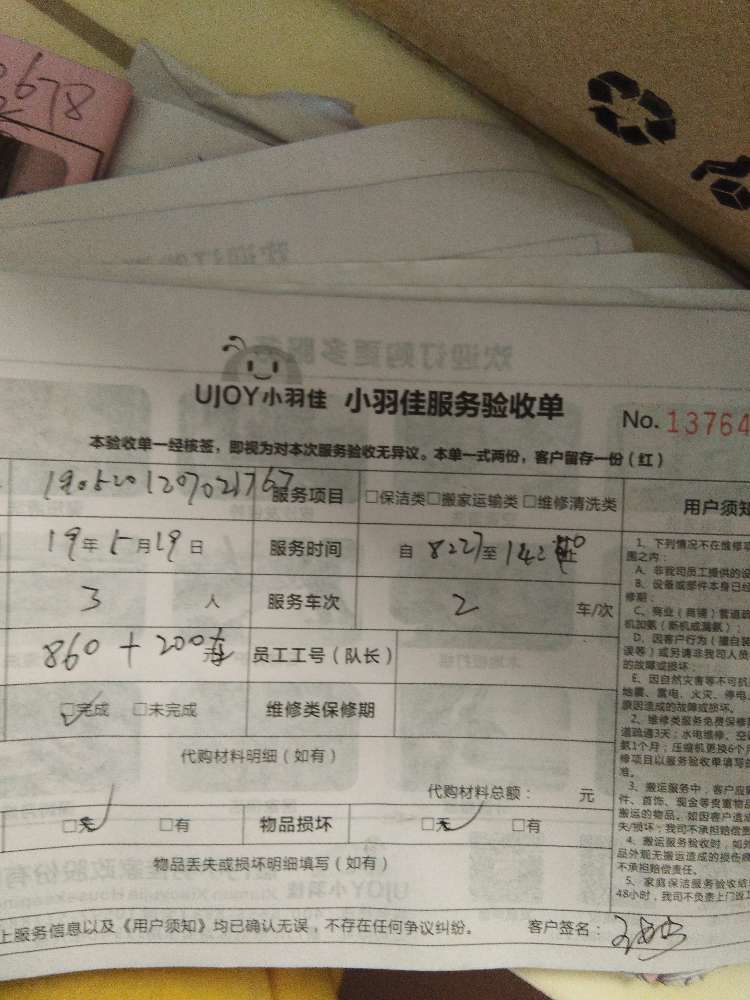 678
UJOY小羽佳 小羽佳服务验收单 No.13764
本验收单一经核签，即视为对本次服务验收无异议。本单一式两份，客户留存一份（红）
服务项目 □保洁类□搬家运输类 □维修清洗类 用户须知
19年5月19日 服务时间 自 至
3 人 服务车次 2 车/次
860+200 元 员工工号（队长）
□完成 □未完成 维修类保修期
代购材料明细（如有）
代购材料总额： 元
□无 □有 物品损坏 □无 □有
物品丢失或损坏明细填写（如有）
上服务信息以及《用户须知》均已确认无误，不存在任何争议纠纷。 客户签名：
1、下列情况不在维修
围之内：
A、非我司员工提供的设
B、设备或部件本身已经
修期；
C、商业（商铺）管道疏
机加氨（新机或漏氨）；
D、因客户行为（擅自装
误等）或另请非我司人员
的故障或损坏；
E、因自然灾害等不可抗
地震、雷电、火灾、停电
原因造成的故障或损坏。
2、维修类服务免费保修
道疏通3天；水电维修、空
氨1个月；压缩机更换6个月
修项目以服务验收单填写
准。
3、搬运服务中，客户应
件、首饰、现金等贵重物品
搬运的物品。如因客户造成
失/损坏，我司不承担赔偿责
4、搬运服务验收时，如外
品外观无搬运造成的损伤
不承担赔偿责任。
5、家庭保洁服务验收结
48小时，我司不负责上门返工